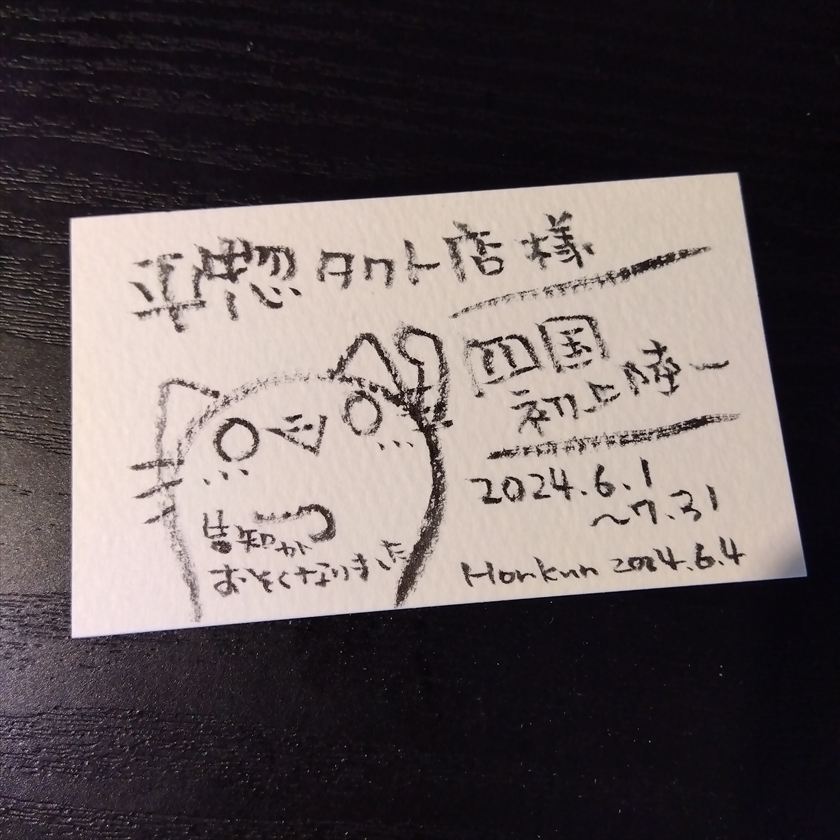 平惣タクト店様
四国
初上陸ー
2024.6.1
～7.31
告知が
おそくなりました
Honkun 2024.6.4